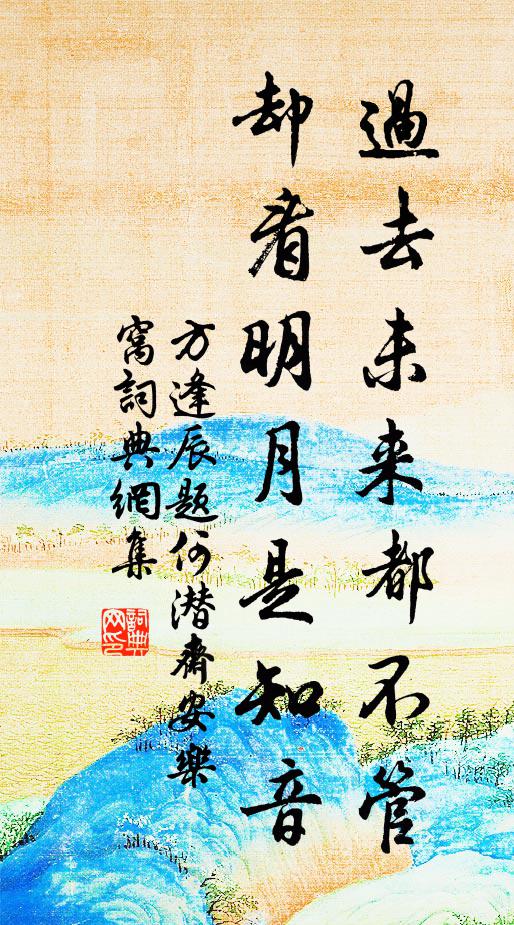 過去未来都不管
却看明月是知音
方逢辰題何潜齋安樂
窩詞典網集
詞典
网印